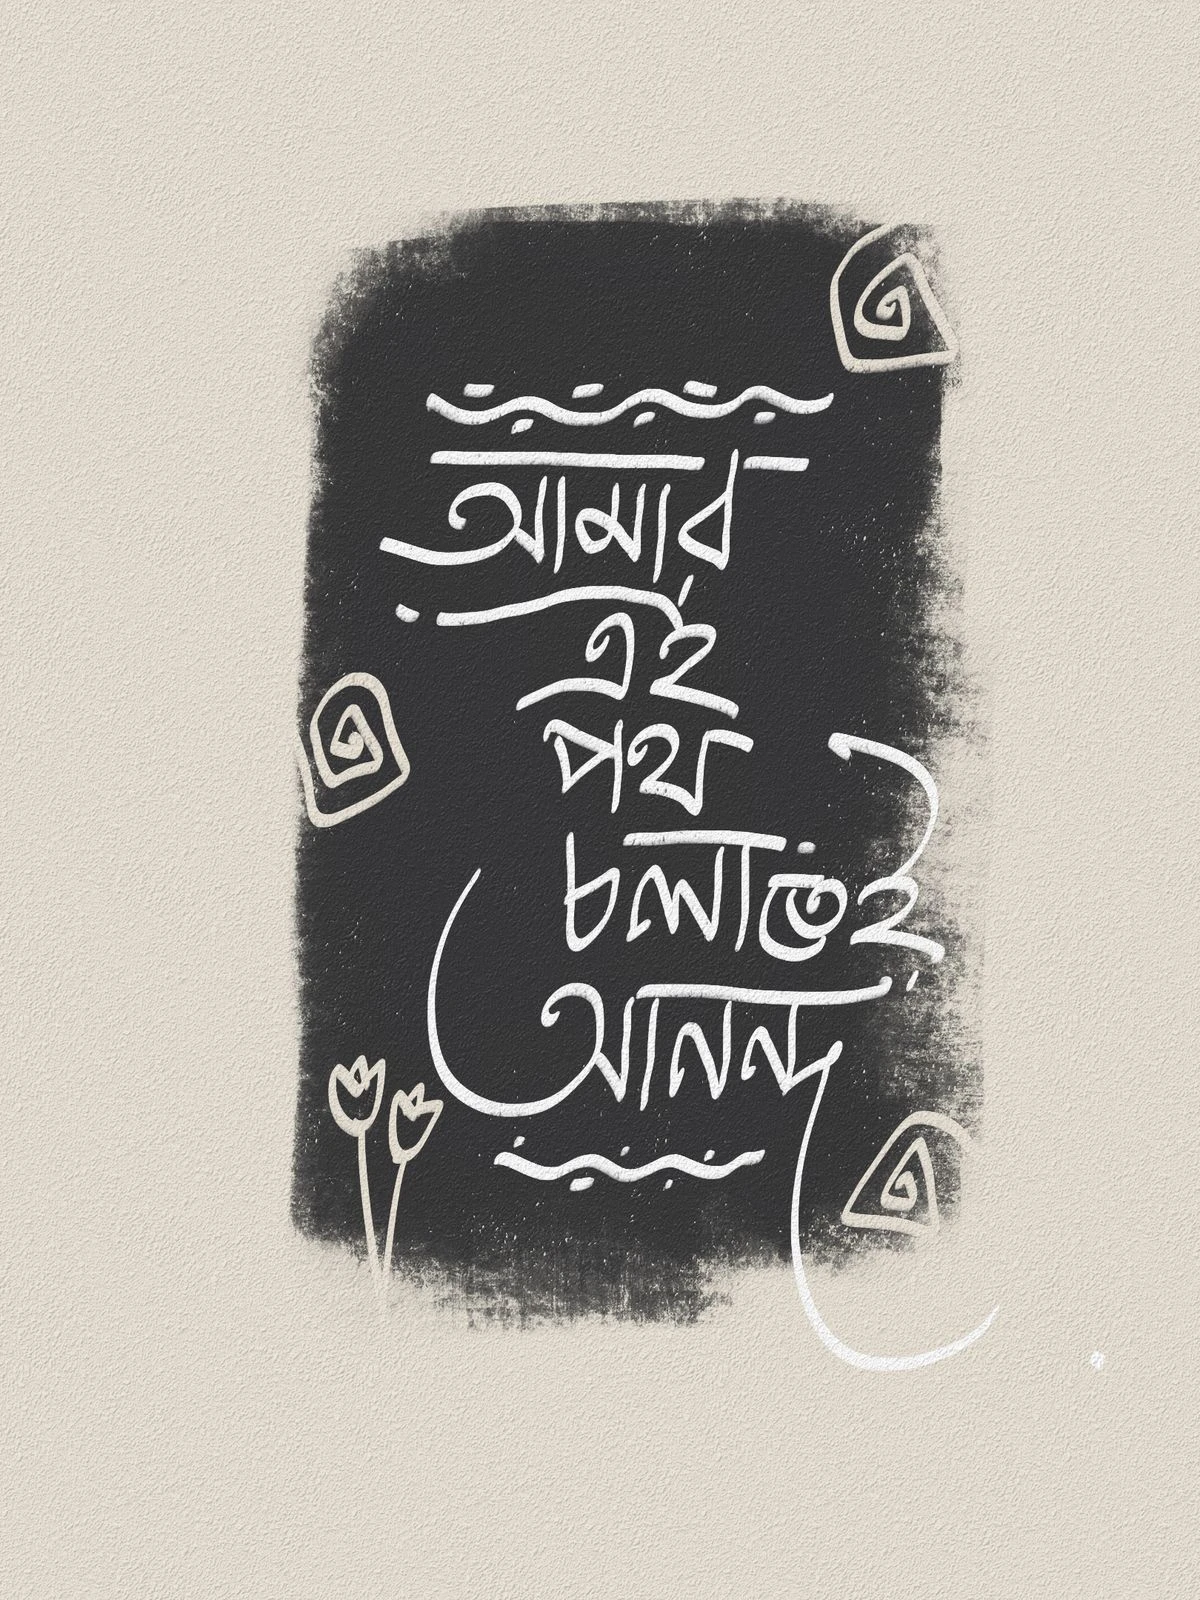 আমার
এই
পথ
চলাতেই
আনন্দ